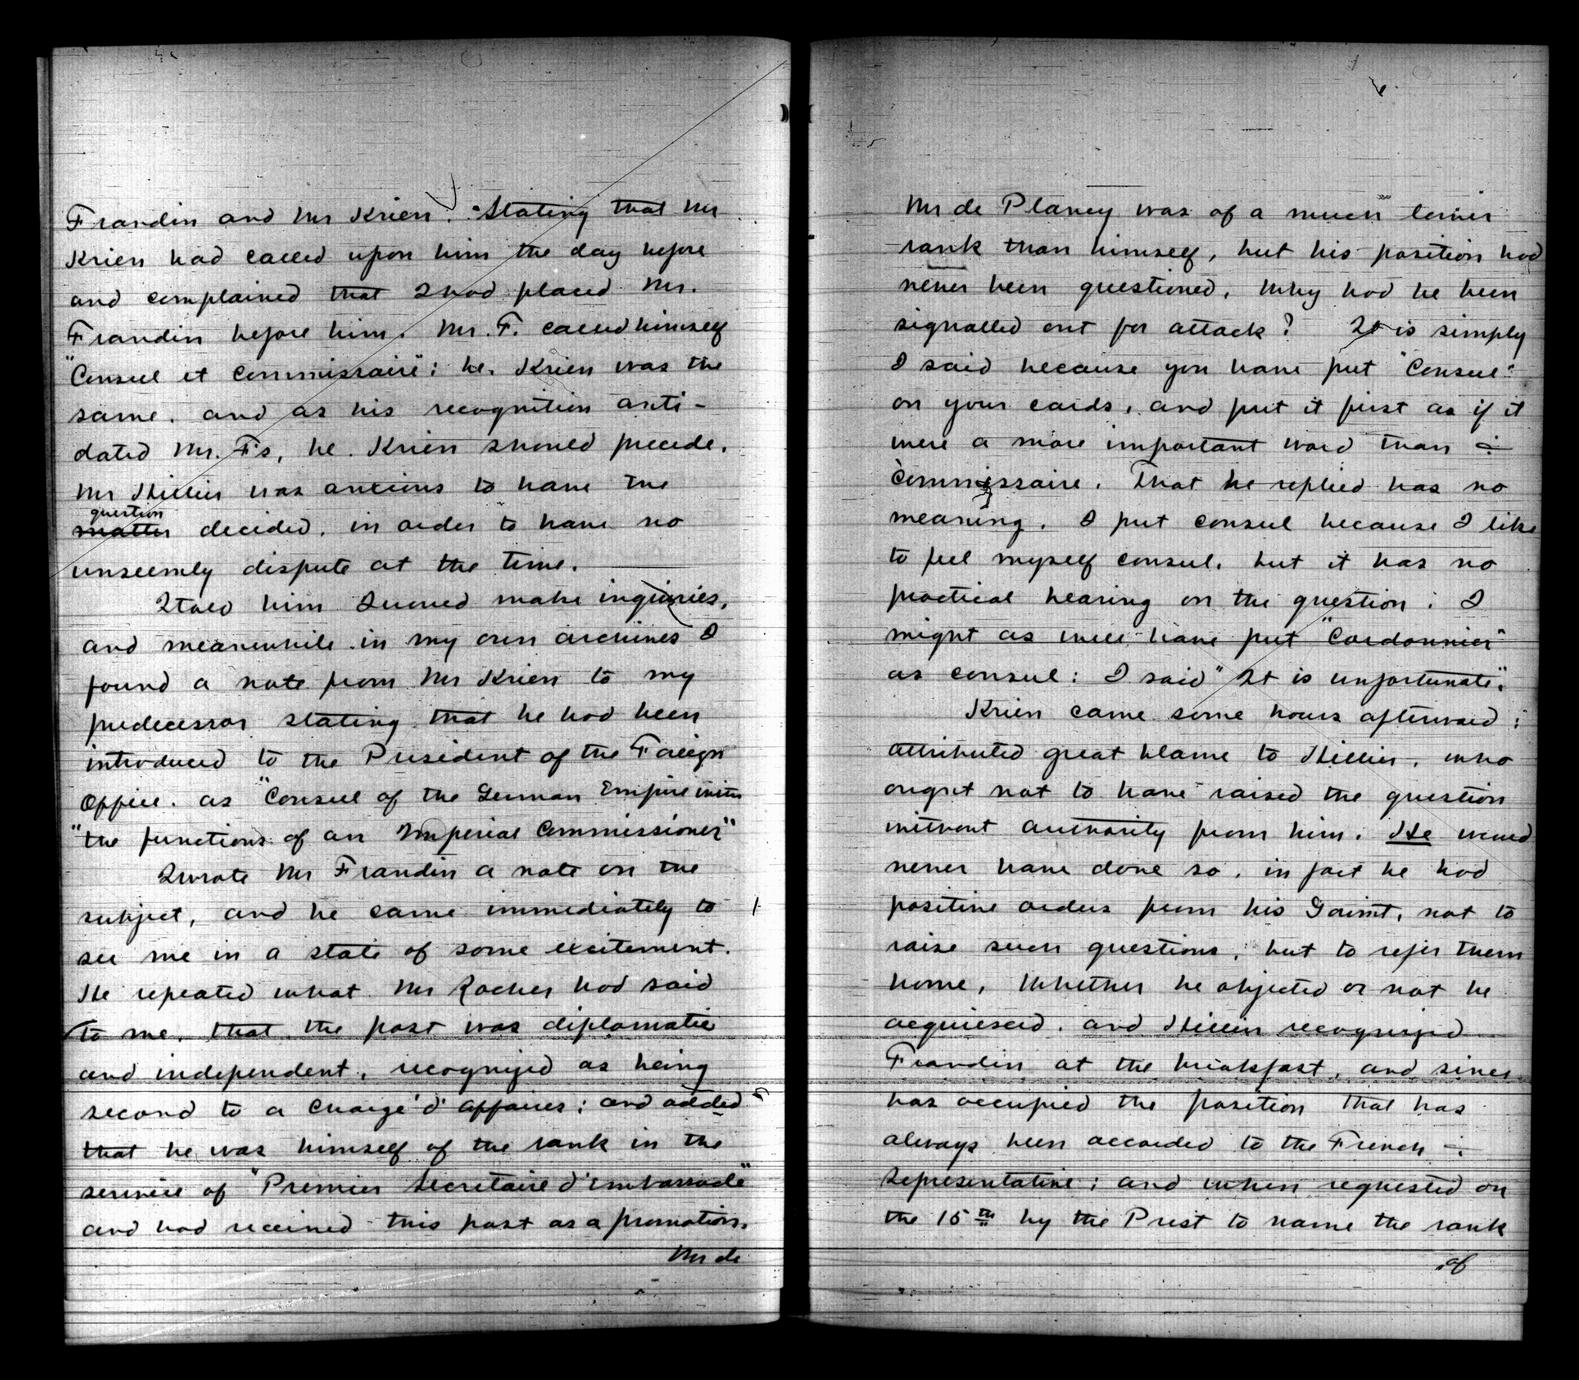 Frandin and Mr Krien. Stating that Mr
Krien had called upon him the day before
and complained that I had placed Mr.
Frandin before him. Mr. F. called himself
"Consul et Commissaire": he, Krien was the
same. and as his recognition anti-
dated Mr. F's, he. Krien should precede.
Mr Hillier was anxious to have the
question
matter decided. in order to have no
unseemly dispute at the time.
I told him I would make inquiries,
and meanwhile in my own archives I
found a note from Mr Krien to my
predecessor stating that he had been
introduced to the President of the Foreign
Office. as "Consul of the German Empire with
"the functions of an Imperial Commissioner"
I wrote Mr Frandin a note on the
subject, and he came immediately to
see me in a state of some excitement.
He repeated what Mr Rocher had said
to me, that the post was diplomatic
and independent, recognized as being
second to a Chargé d' Affaires; and added
that he was himself of the rank in the
service of "Premier Secretaire d'embassade"
and had received this post as a promotion.
Mr de
Mr de Plancy was of a much lower
rank than himself, but his position had
never been questioned. Why had he been
signalled out for attack? It is simply
I said because you have put "Consul"
on your cards, and put it first as if it
were a more important word than
Commissaire. That he replied has no
meaning. I put consul because I like
to feel myself consul. but it has no
practical bearing on the question: I
might as well have put "Cordonnier"
as consul: I said "It is unfortunate".
Krien came some hours afterward;
attributed great blame to Hillier, who
ought not to have raised the question
without authority from him. He would
never have done so. in fact he had
positive orders from his Govmt, not to
raise such questions, but to refer them
home, Whether he objected or not he
acquiesced. and Hillier recognized
Frandin at the breakfast, and since
has occupied the position that has
always been accorded to the French
Representative; and when requested on
the 15th by the Prest to name the rank
of